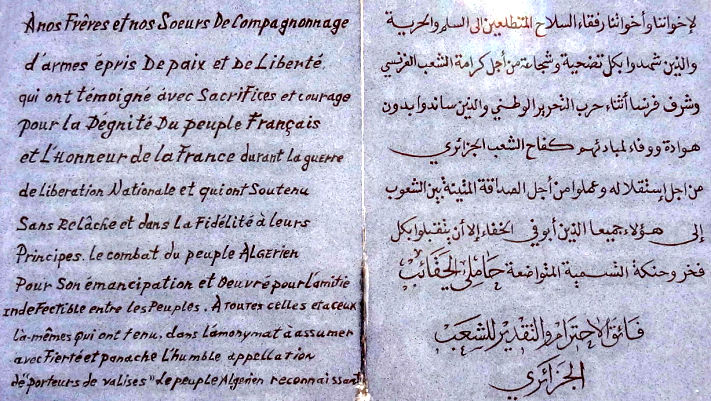 A nos Frères et nos Soeurs De Compagnonnage
d'armes épris De paix et De Liberté.
qui ont témoigné avec Sacrifices et courage
pour la Dégnité Du peuple Français
et L'Honneur de la France durant la guerre
de liberation Nationale et qui ont Soutenu
Sans Relâche et dans la Fidélité à leurs
Principes. le combat du peuple ALGERIEN
Pour Son émancipation et Oeuvré pour l'amitié
indefectible entre les Peuples. À toutes celles et à ceux
là-mêmes qui ont tenu, dans l'anonymat à assumer
avec Fierté et panache L'humble appellation
de "porteurs de valises" Le peuple Algerien reconnaissant
لإخواننا وأخواتنا رفقاء السلاح المتطلعين إلى السلم والحرية
والذين شهدوا بكل تضحية وشجاعة من أجل كرامة الشعب الفرنسي
وشرف فرنسا أثناء حرب التحرير الوطني والذين ساندوا بدون
هوادة ووفاء لمبادئهم كفاح الشعب الجزائري
من اجل إستقلاله وعملوا من أجل الصداقة المتينة بين الشعوب
إلى هؤلاء جميعا الذين أبو في الخفاء إلا أن يتقبلوا بكل
فخر وحنكة التسمية المتواضعة حاملي الحقائب
فائق الاحترام والتقدير للشعب
الجزائري